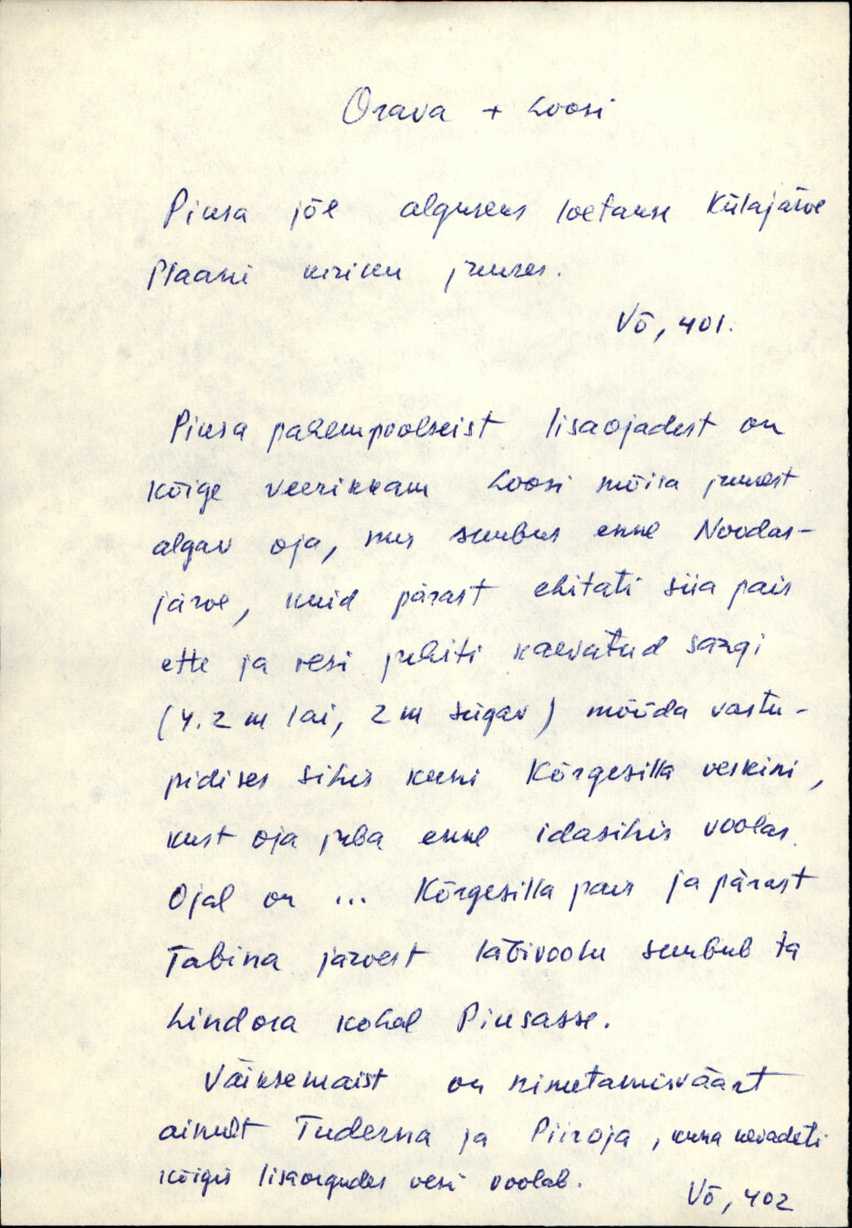 Orava + Loosi
Piusa jõe alguseks loetakse Külajärve
Plaani kiriku juures.
Võ, 401.
Piusa pahempoolseist lisaojadest on
kõige veerikkam Loosi mõisa juurest
algav oja, mis suubus enne Noodas-
järve, kuid pärast ehitati siia pais
ette ja vesi juhiti kaevatud sängi
(4.2 m lai, 2 m sügav) mööda vastu-
pidises sihis kuni Kõrgesilla veskini,
kust oja juba enne idasihis voolas.
Ojal on ... Kõrgesilla pais ja pärast
Tabina järvest läbivoolu suubub ta
Lindora kohal Piusasse.
Väiksemaist on nimetamisväärt
ainult Tuderna ja Piiroja, kuna kevadeti
kõigis lisaorgudes vesi voolab.
Võ, 402